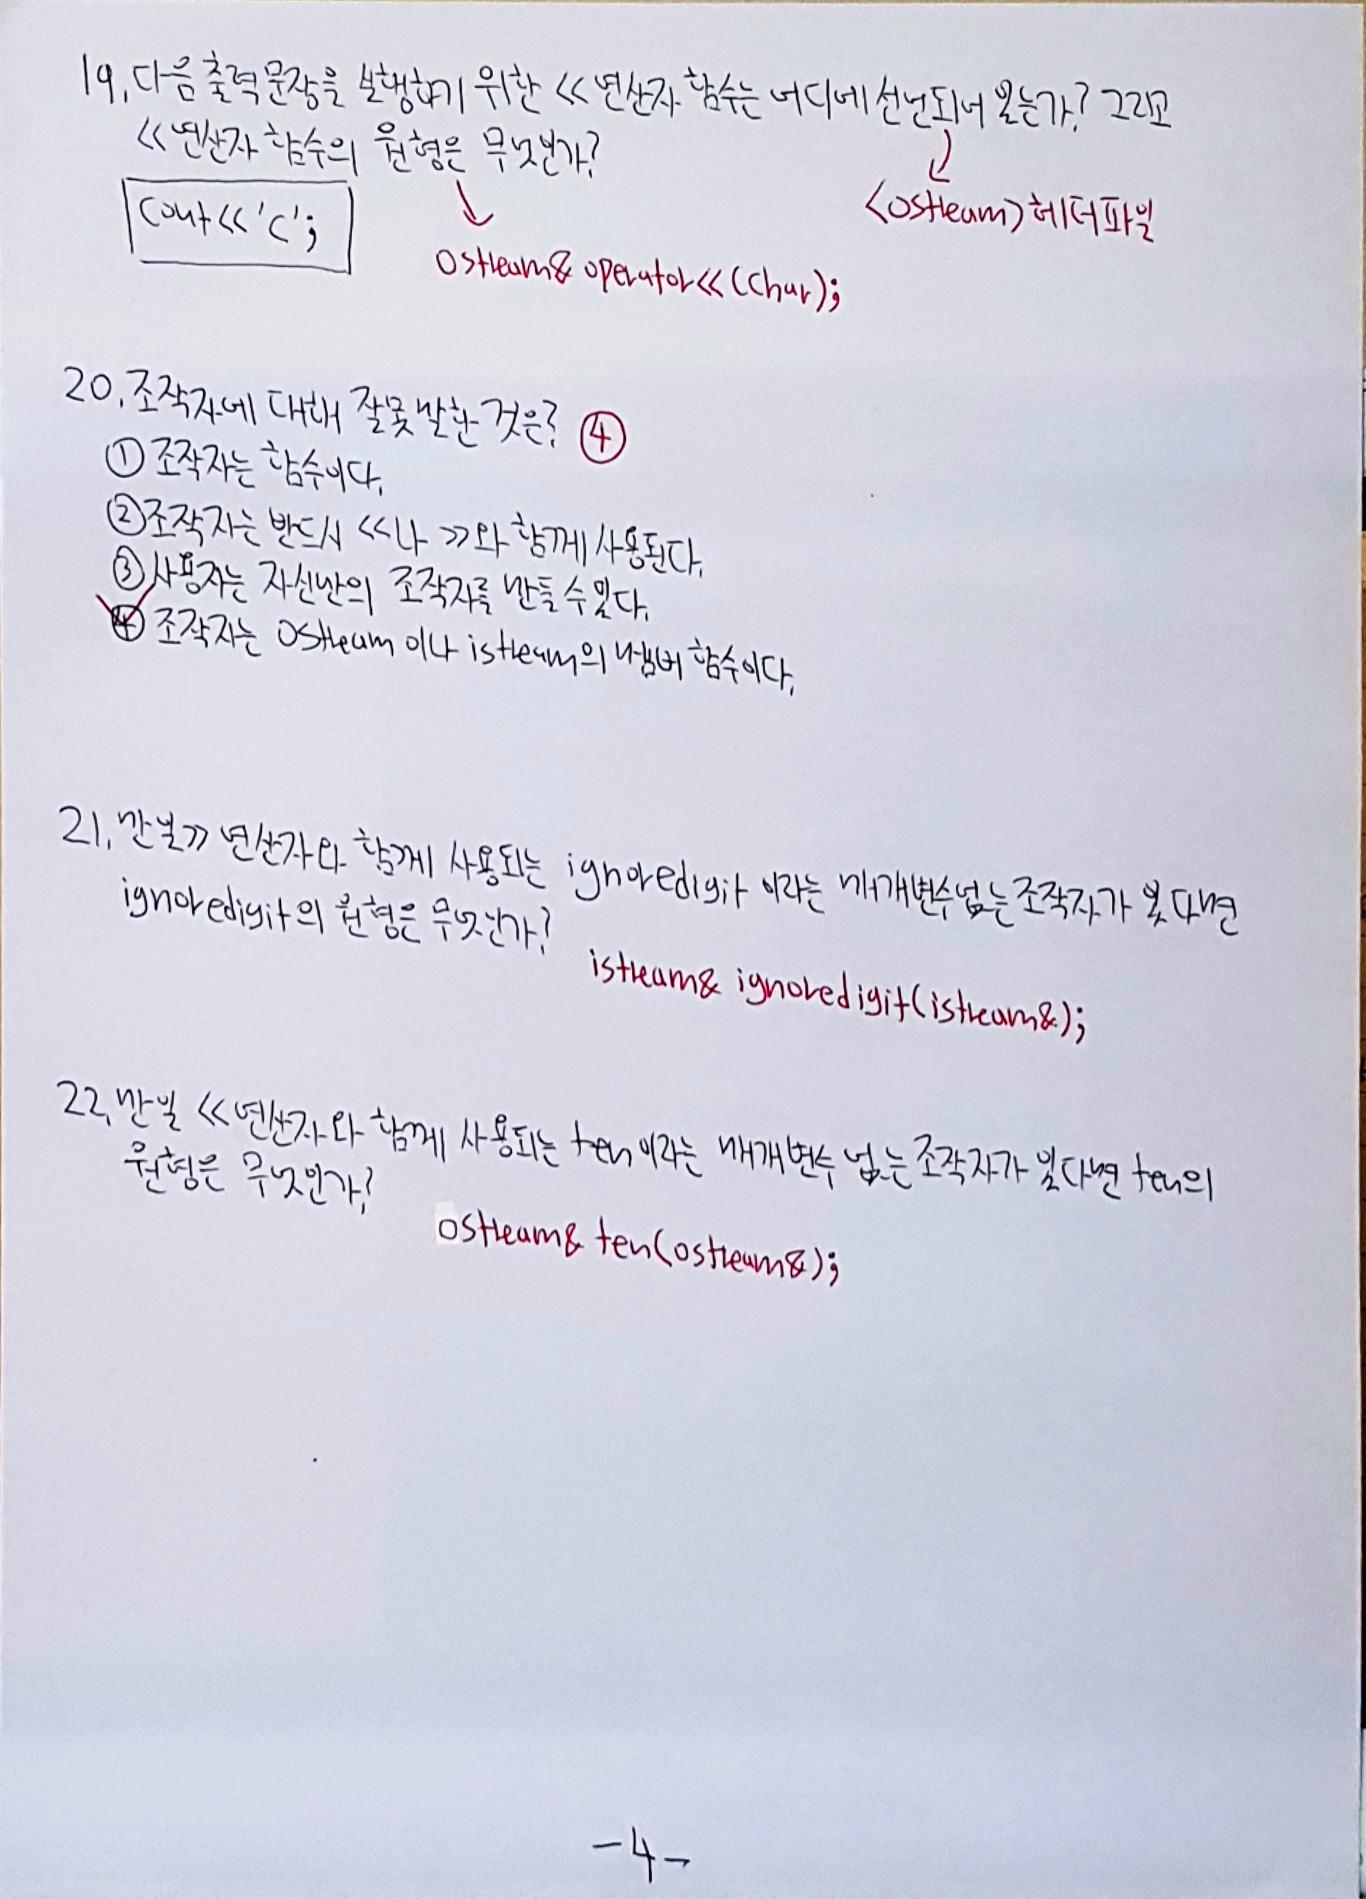 19. 다음 출력문장을 실행하기 위한 << 연산자 함수는 어디에 선언되어 있는가? 그리고
<< 연산자 함수의 원형은 무엇인가?
cout<<'c';
<ostream>헤더파일
ostream& operator<<(char);
20. 조작자에 대해 잘못 말한 것은? ④
① 조작자는 함수이다.
② 조작자는 반드시 <<나 >>와 함께 사용된다.
③ 사용자는 자신만의 조작자를 만들 수 있다.
④ 조작자는 ostream이나 istream의 멤버 함수이다.
21. 만일 >> 연산자와 함께 사용되는 ignoredigit 이라는 매개변수 없는 조작자가 있다면
ignoredigit의 원형은 무엇인가?
istream& ignoredigit(istream&);
22. 만일 << 연산자와 함께 사용되는 ten이라는 매개변수 없는 조작자가 있다면 ten의
원형은 무엇인가?
ostream& ten(ostream&);
-4-